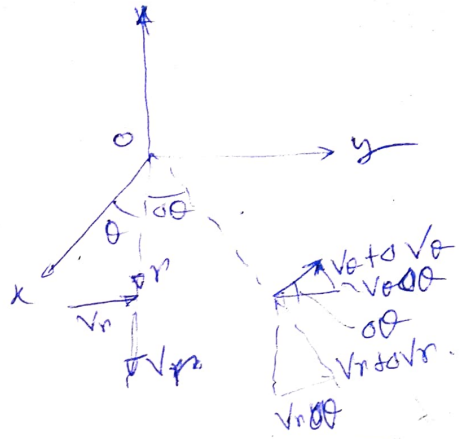 O
y
Δθ
θ
x
r
Vr
Vθ+ΔVθ
VθΔθ
Δθ
Vr+ΔVr
VrΔθ